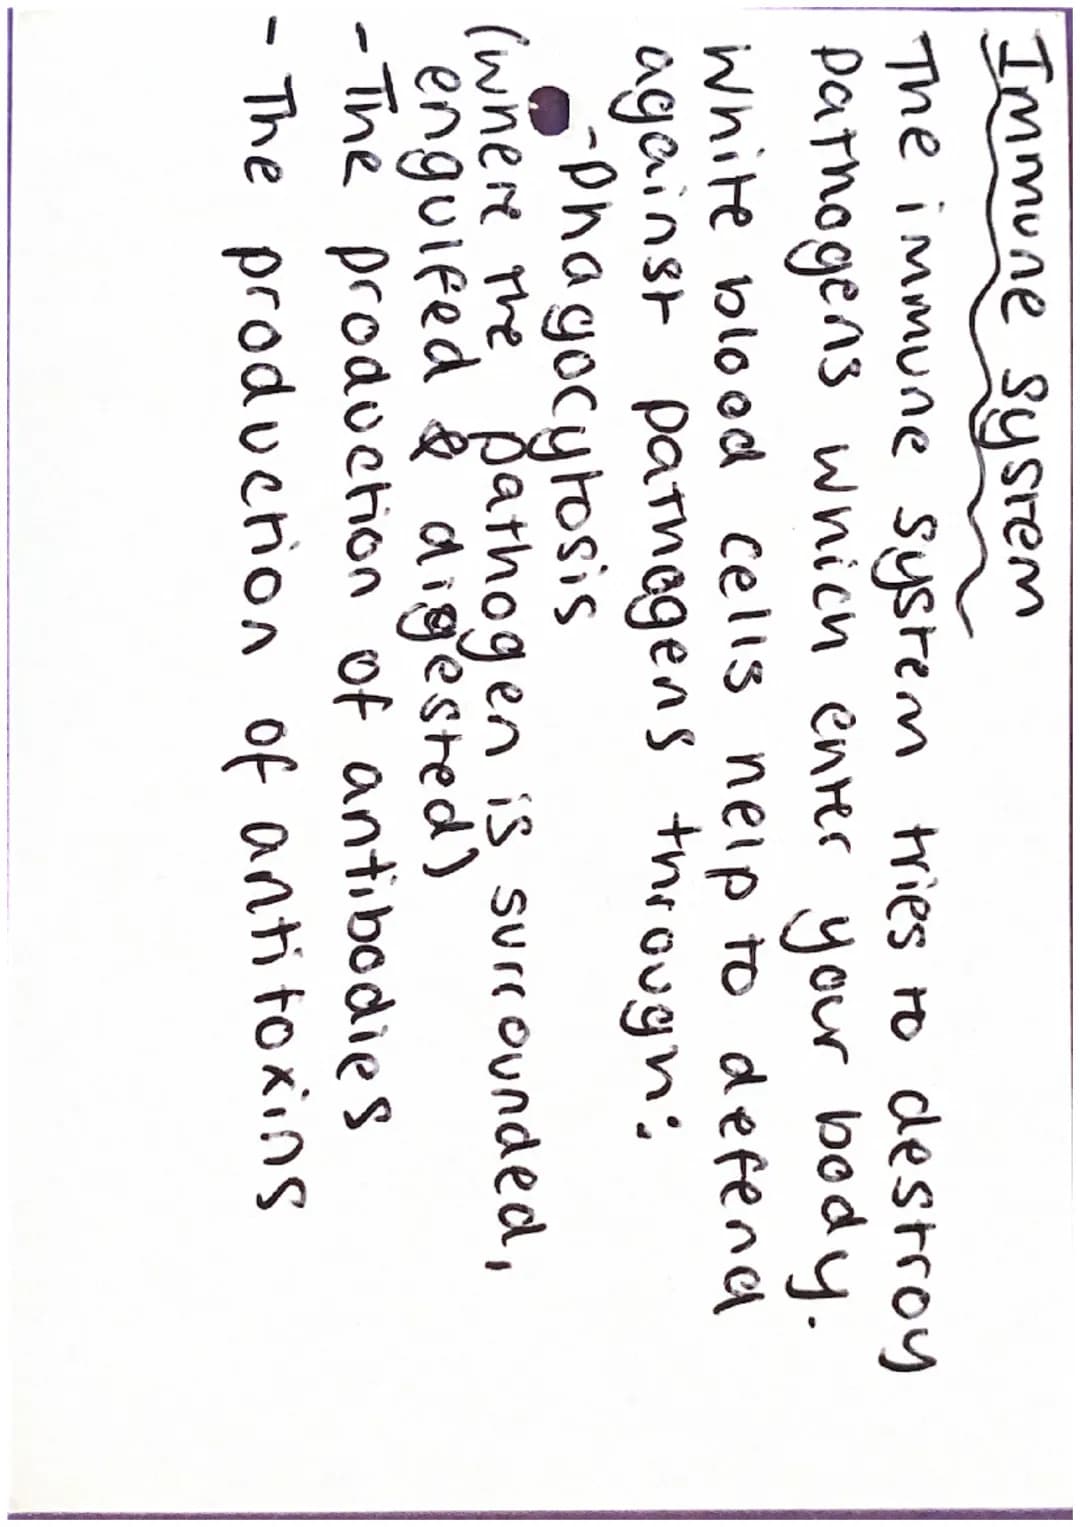 Immune System
The immune system tries to destroy
pathogens which enter your body.
White blood cells help to defend
against pathogens through:
-phagocytosis
(where the pathogen is surrounded,
engulfed & digested)
-The production of antibodies
- The production of antitoxins